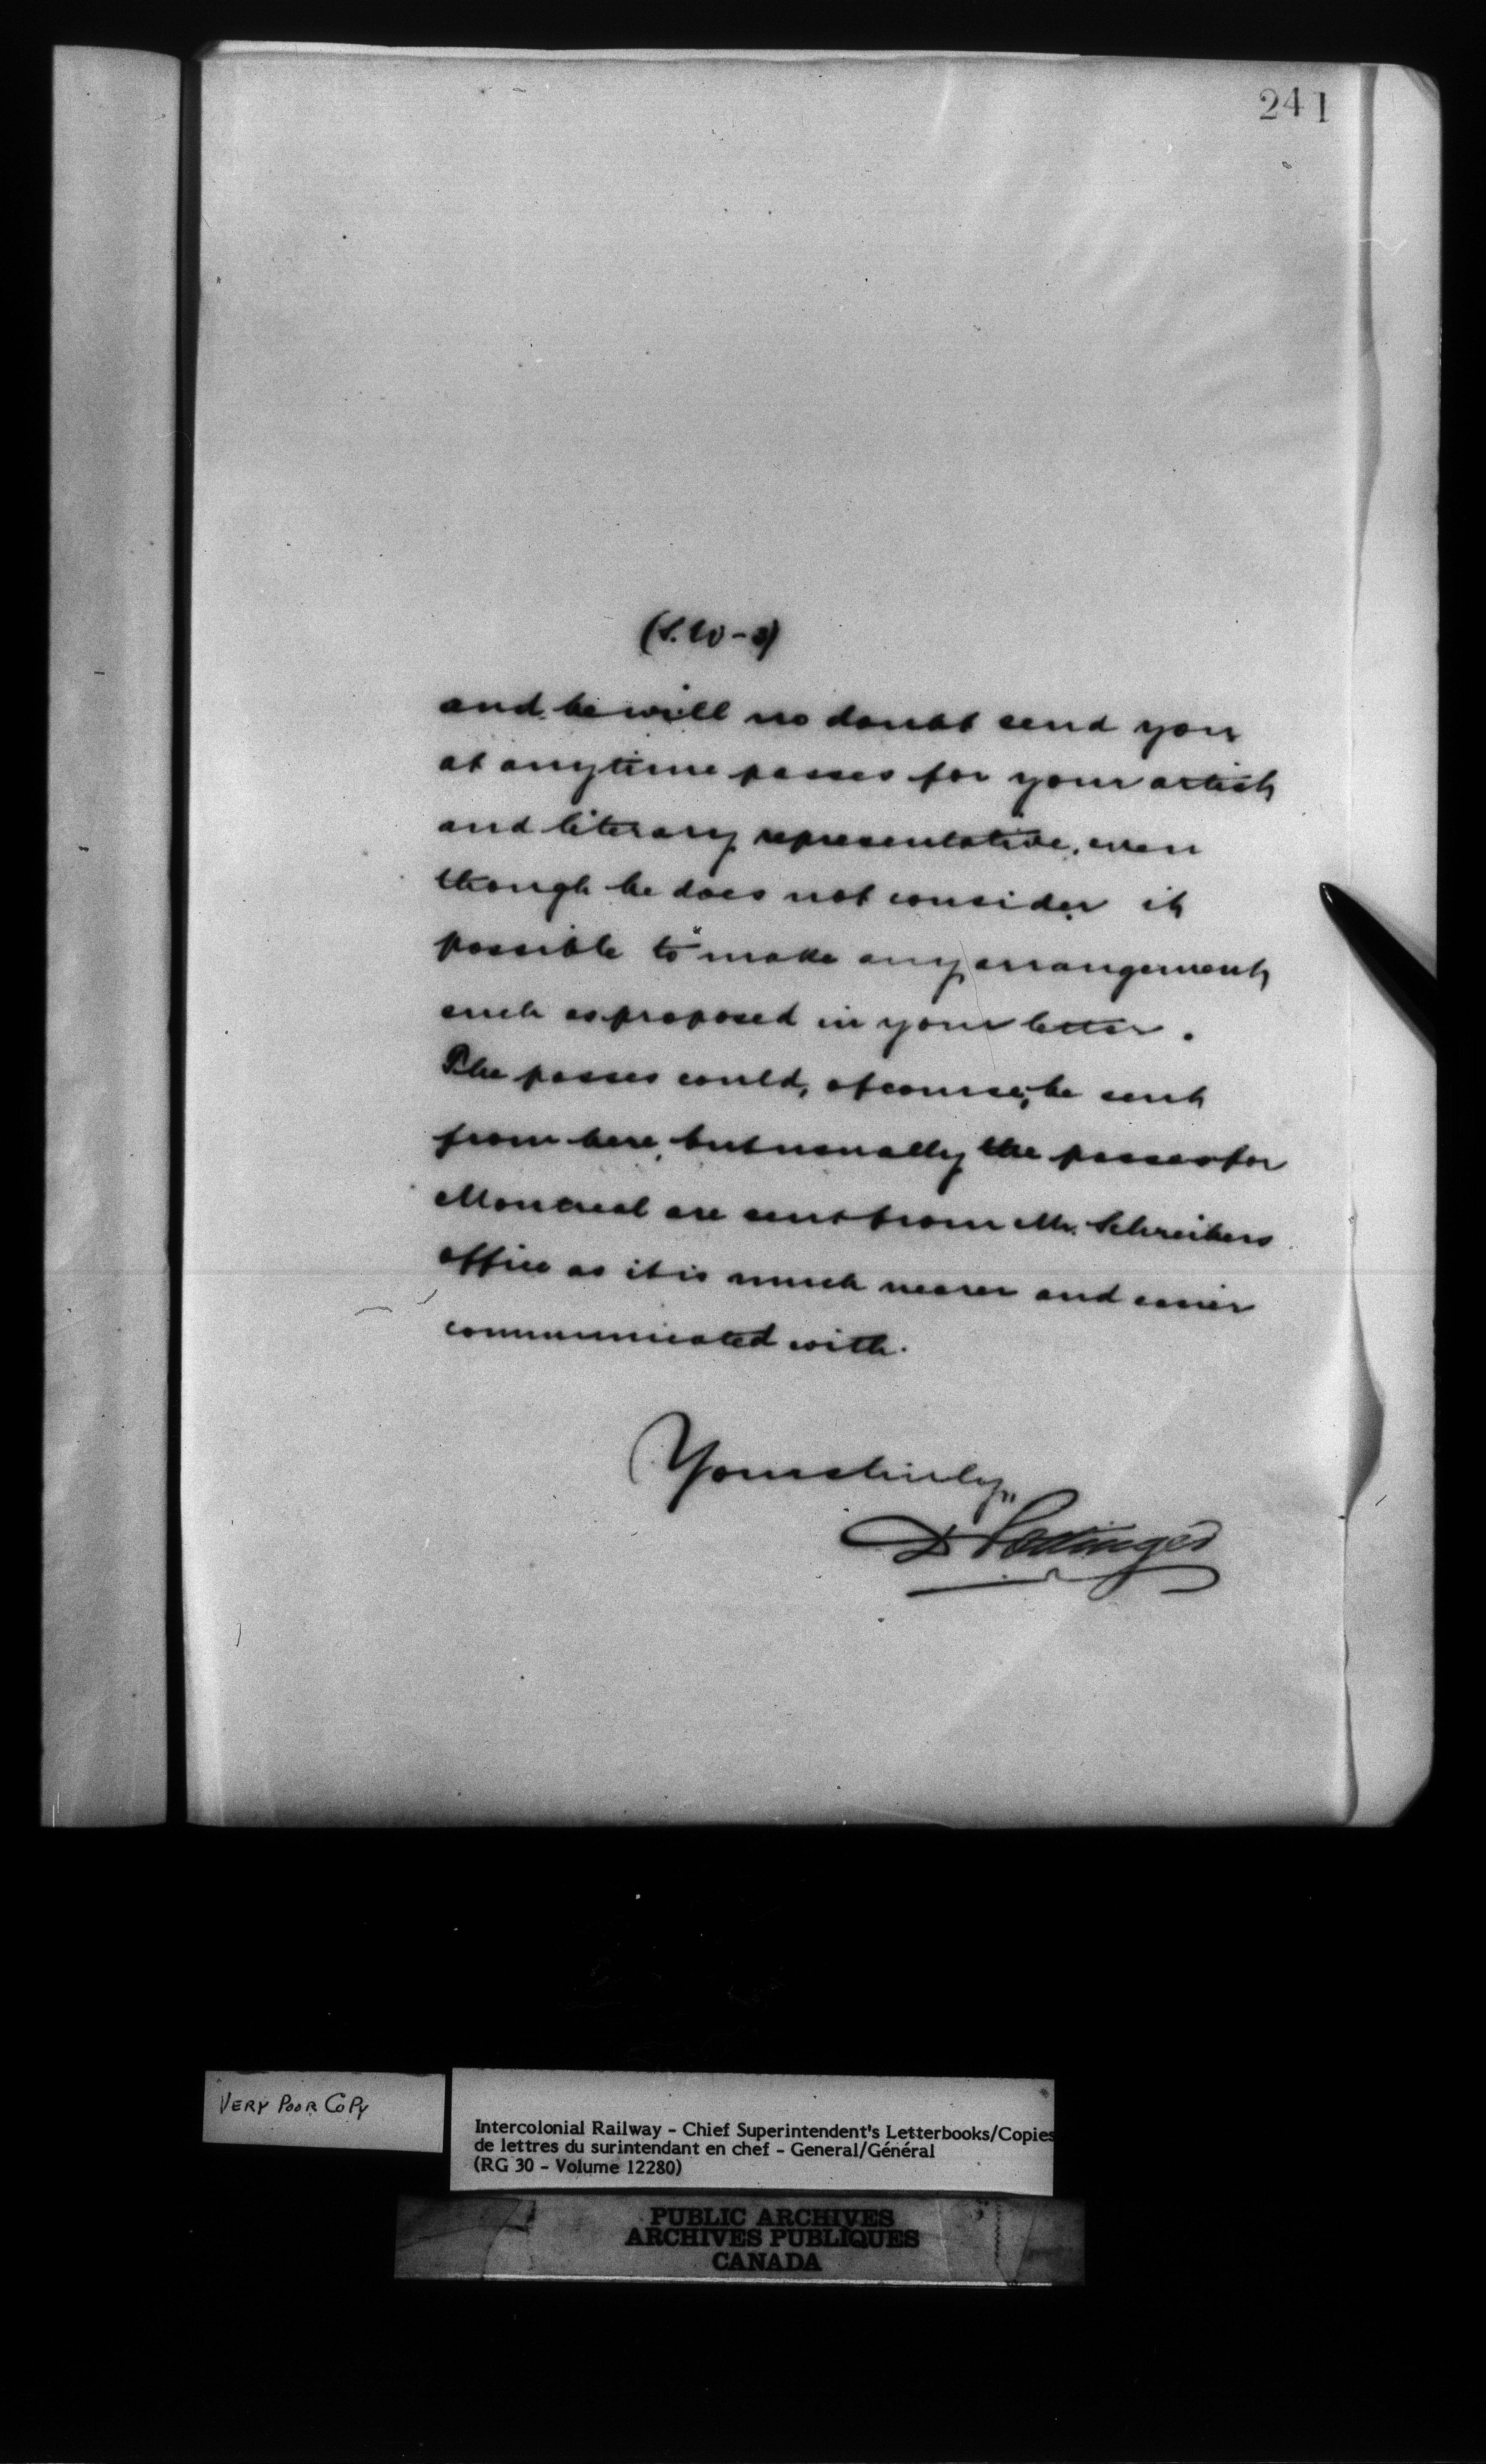 241
(S.W-3)
and he will no doubt send you
at anytime passes for your artist
and literary representative, even
though he does not consider it
possible to make any arrangement
such as proposed in your letter.
The passes could, of course, be sent
from here, but usually the passes for
Montreal are sent from Mr. Schreibers
office as it is much nearer and easier
communicated with.
Yours truly,
D Pottinger
VERY POOR COPY
Intercolonial Railway - Chief Superintendent's Letterbooks/Copies
de lettres du surintendant en chef - General/Général
(RG 30 - Volume 12280)
PUBLIC ARCHIVES
ARCHIVES PUBLIQUES
CANADA